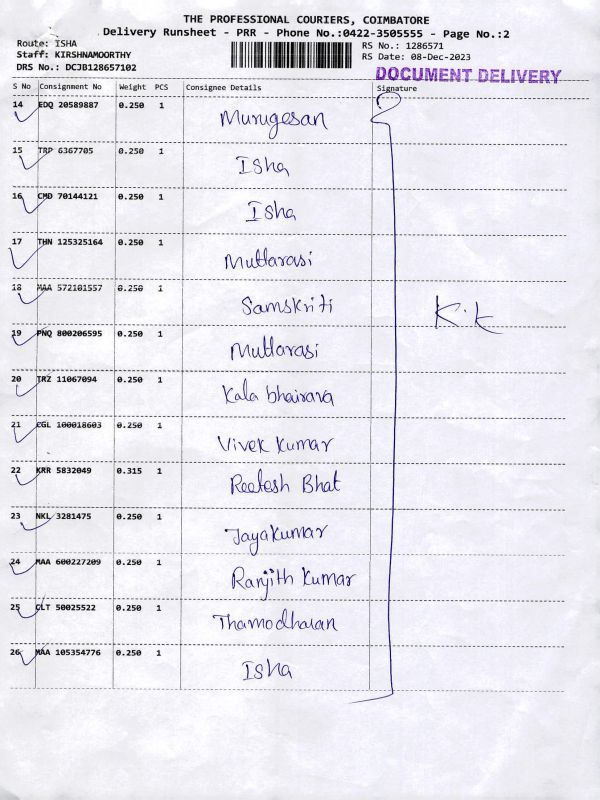 THE PROFESSIONAL COURIERS, COIMBATORE
Delivery Runsheet - PRR - Phone No.:0422-3505555 - Page No.:2
Route: ISHA
Staff: KIRSHNAMOORTHY
DRS No.: DCJB128657102
RS No.: 1286571
RS Date: 08-Dec-2023
DOCUMENT DELIVERY
S No Consignment No Weight PCS Consignee Details Signature
14 EDQ 20589887 0.250 1 Murugesan
15 TRP 6367705 0.250 1 Isha
16 CMD 70144121 0.250 1 Isha
17 THN 125325164 0.250 1 Muttarasi
18 MAA 572101557 0.250 1 Samskriti K.K
19 PNQ 800206595 0.250 1 Muttarasi
20 TRZ 11067094 0.250 1 Kala bhairava
21 CGL 100018603 0.250 1 Vivek Kumar
22 KRR 5832049 0.315 1 Reetesh Bhat
23 NKL 3281475 0.250 1 Jayakumar
24 MAA 600227209 0.250 1 Ranjith Kumar
25 CLT 50025522 0.250 1 Thamodharan
26 MAA 105354776 0.250 1 Isha